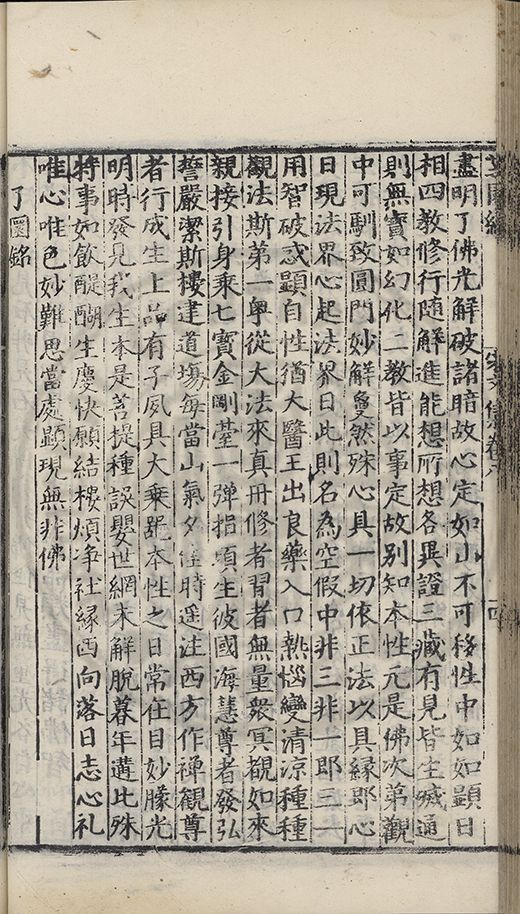 盡明了佛光解破諸暗故心定如山不可移性中如如顯日
相四教修行随解進能想所想各異證三藏有見皆生滅通
則無實如幻化二教皆以事定故别知本性元是佛次第觀
中可馴致圓門妙解敻然殊心具一切依正法以具緣即心
日現法界心起法界日此則名為空假中非三非一即三一
用智破惑顯自性猶大醫王出良藥入口熱惱變清涼種種
觀法斯第一寧從大法來真冊修者習者無量衆冥覩如來
親接引身乗七寶金剛臺一彈指頃生彼國海慧尊者發弘
誓嚴潔斯樓建道塲每當山氣夕佳時遥注西方作禅觀尊
者行成生上品有子夙具大乗䟦本性之日常在目妙朦光
明時發見我生本是菩提種誤嬰世網未解脱暮年遘此殊
特事如飲醍醐生慶快願結樓煩净社緣西向落日志心礼
唯心唯色妙難思當處顯現無非佛
了圎銘